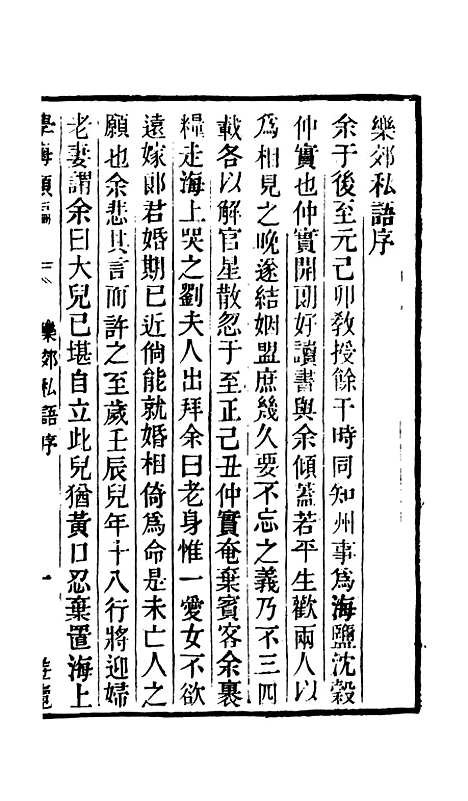 樂郊私語序
余于後至元己卯教授餘干時同知州事爲海鹽沈穀
仲實也仲實開朗好讀書與余傾蓋若平生歡兩人以
爲相見之晚遂結姻盟庶幾久要不忘之義乃不三四
載各以解官星散忽于至正己丑仲實奄棄賓客余裹
糧走海上哭之劉夫人出拜余曰老身惟一愛女不欲
遠嫁郎君婚期已近倘能就婚相倚爲命是未亡人之
願也余悲其言而許之至歲壬辰兒年十八行將迎婦
老妻謂余曰大兒已堪自立此兒猶黃口忍棄置海上
學海類編 樂郊私語序 一